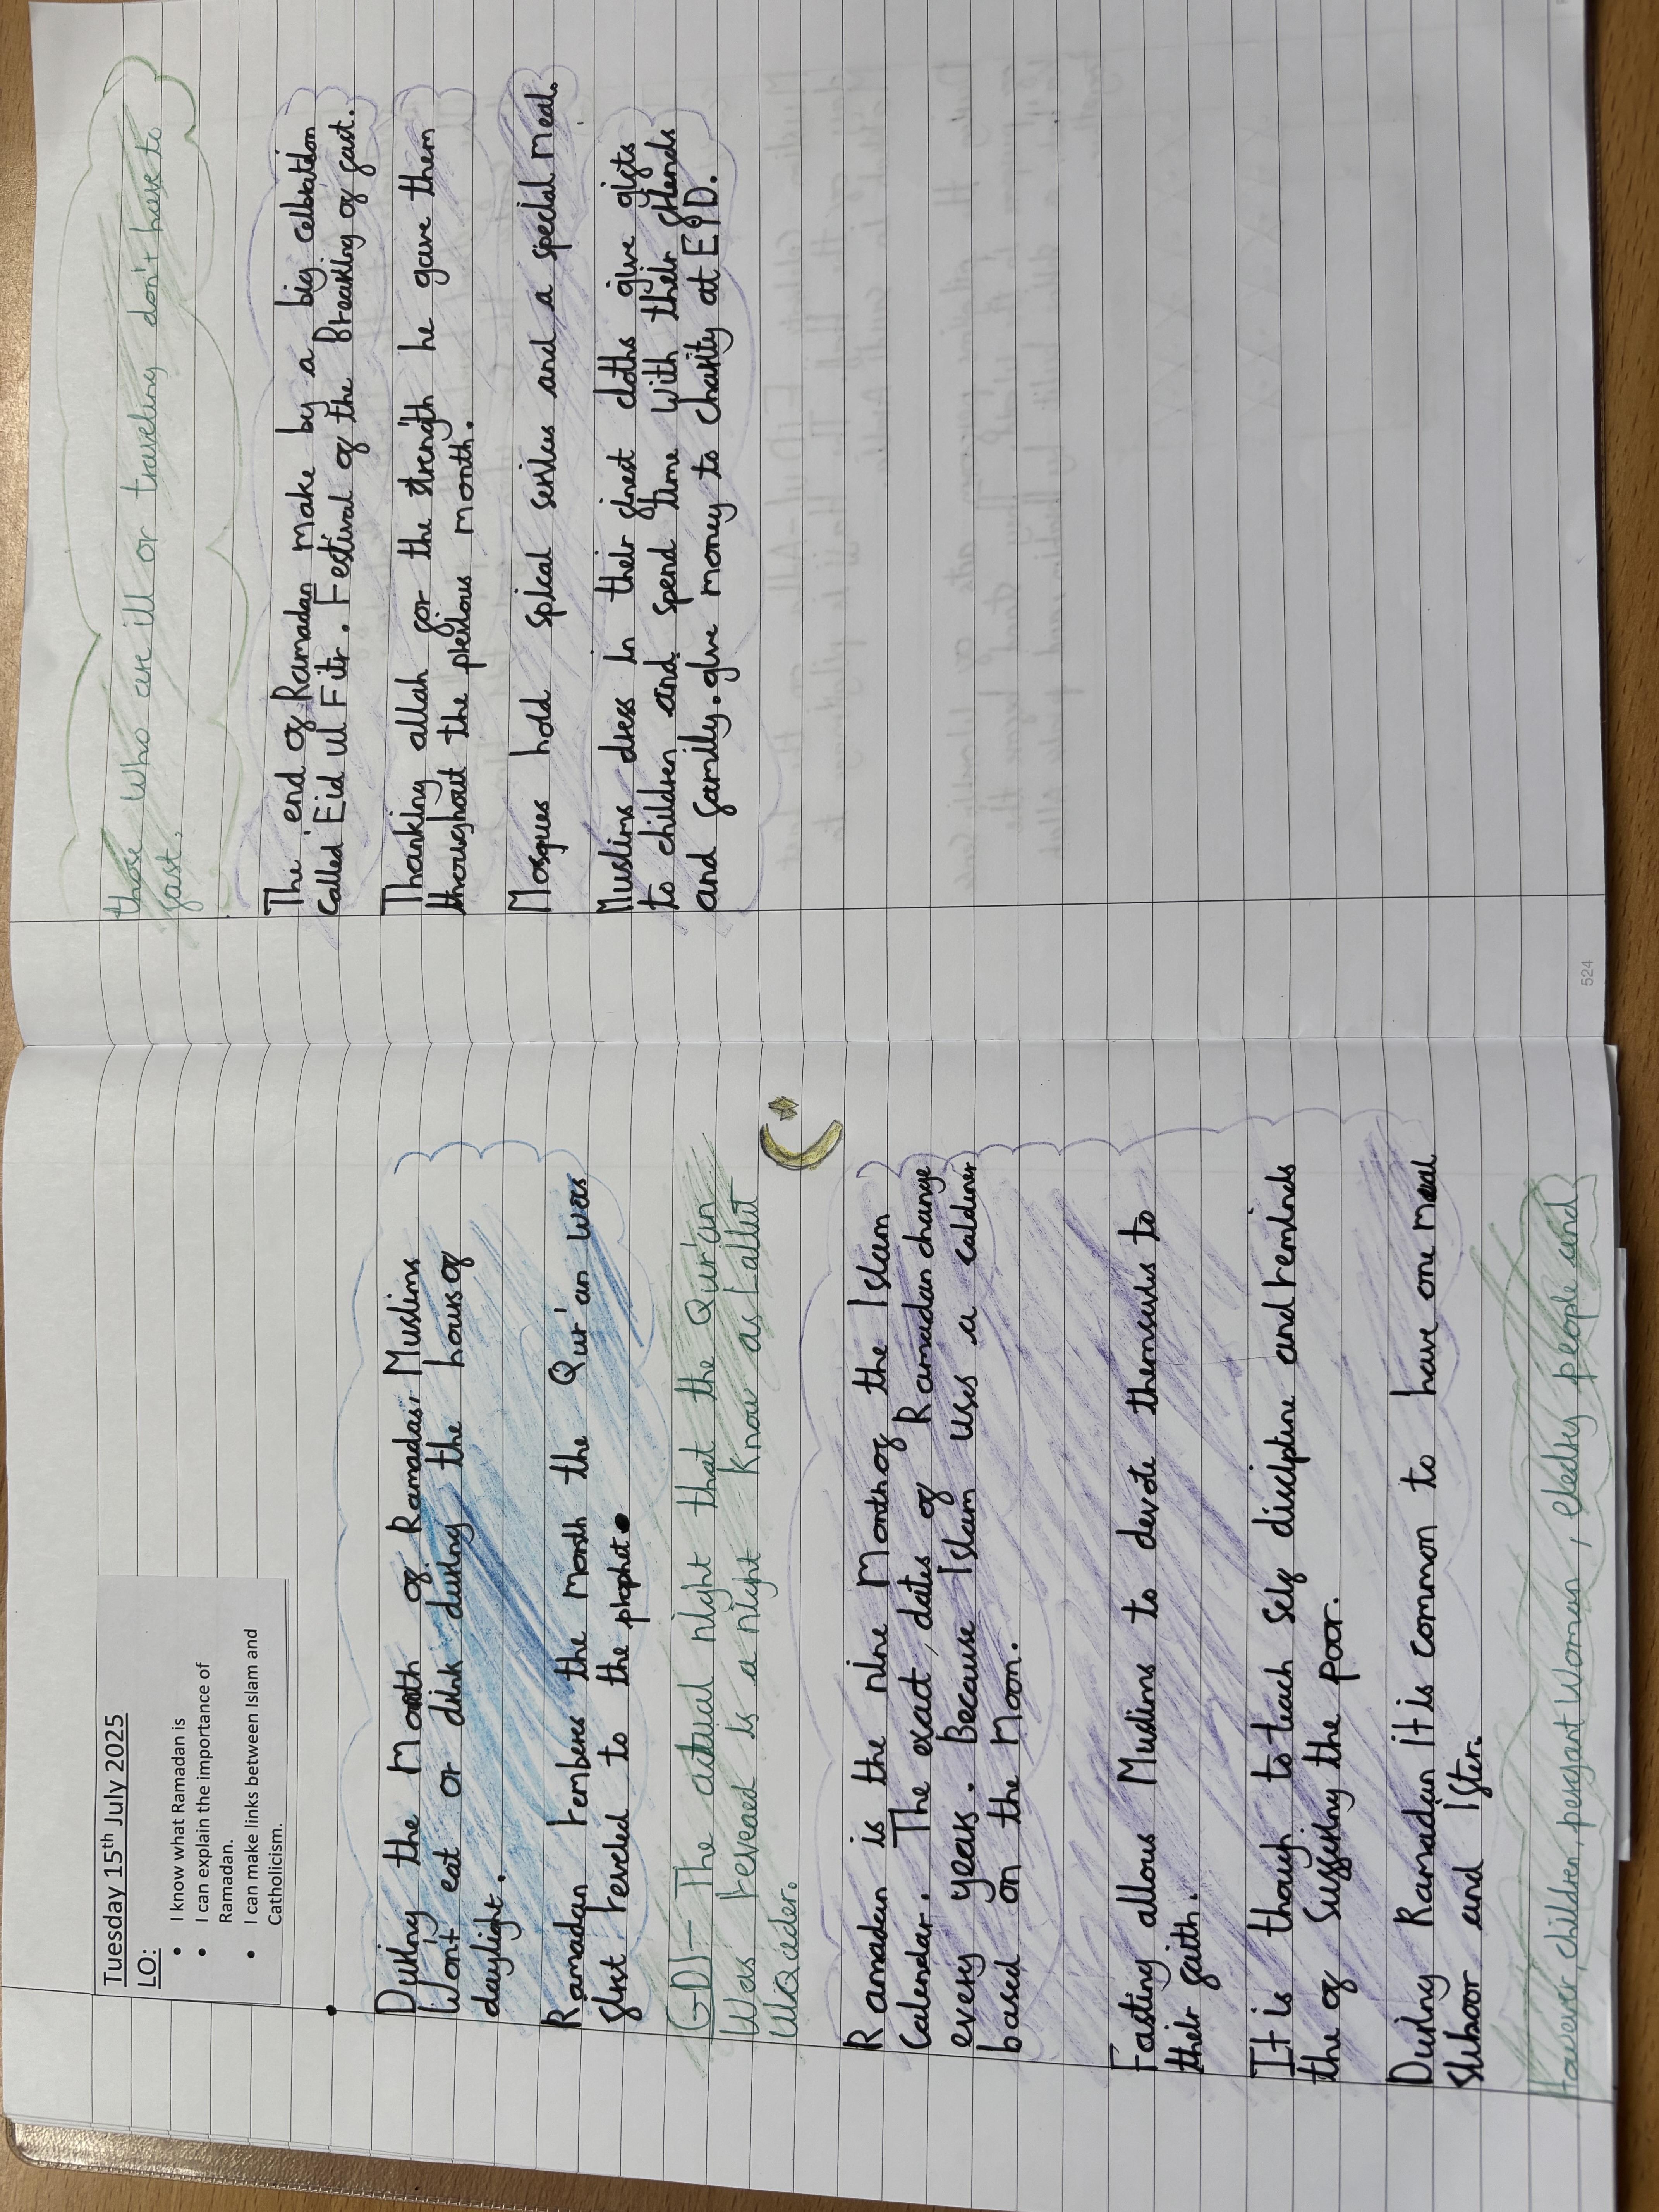 Tuesday 15th July 2025
LO:
• I know what Ramadan is
• I can explain the importance of
Ramadan.
• I can make links between Islam and
Catholicism.
During the Month of Ramadas, Muslims
Won't eat or drink during the hours of
daylight.
Ramadan rembers the month the Qur'an was
first reveled to the prophet.
GDI- The actual night that the Qur'an
was revealed is a night know as Lallut
WaQader.
Ramadan is the nine Month of the Islam
Calendar. The exact, dates of Ramadan change
every years. Because Islam uses a caldiner
based on the Moon.
Fasting allous Muslims to devote themselves to
their faith.
It is though to teach self discipline and reminds
the of Suffering the Poor.
During Ramadan It is common to have one meal
Suboor and Ister.
However, children, pergant Woman, eledley people and
those who are ill or traveling don't have to
fast.
The end of Ramadan make by a big celbration
Called Eid ul Fitr. Festival of the Breaking of fast.
Thanking allah for the strength he gave them
throughout the previous month.
Mosques hold spical serives and a special meal.
Muslims dress in their finest cloths give gifts
to children and spend time with their friends
and family. give money to charity at EID.
524